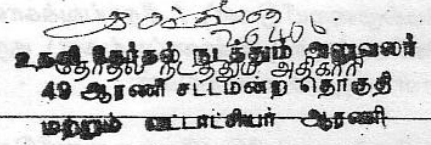 26406
உதவி தேர்தல் நடத்தும் அலுவலர்
தேர்தல் நடத்தும் அதிகாரி
49 ஆரணி சட்டமன்ற தொகுதி
மற்றும் வட்டாட்சியர் ஆரணி